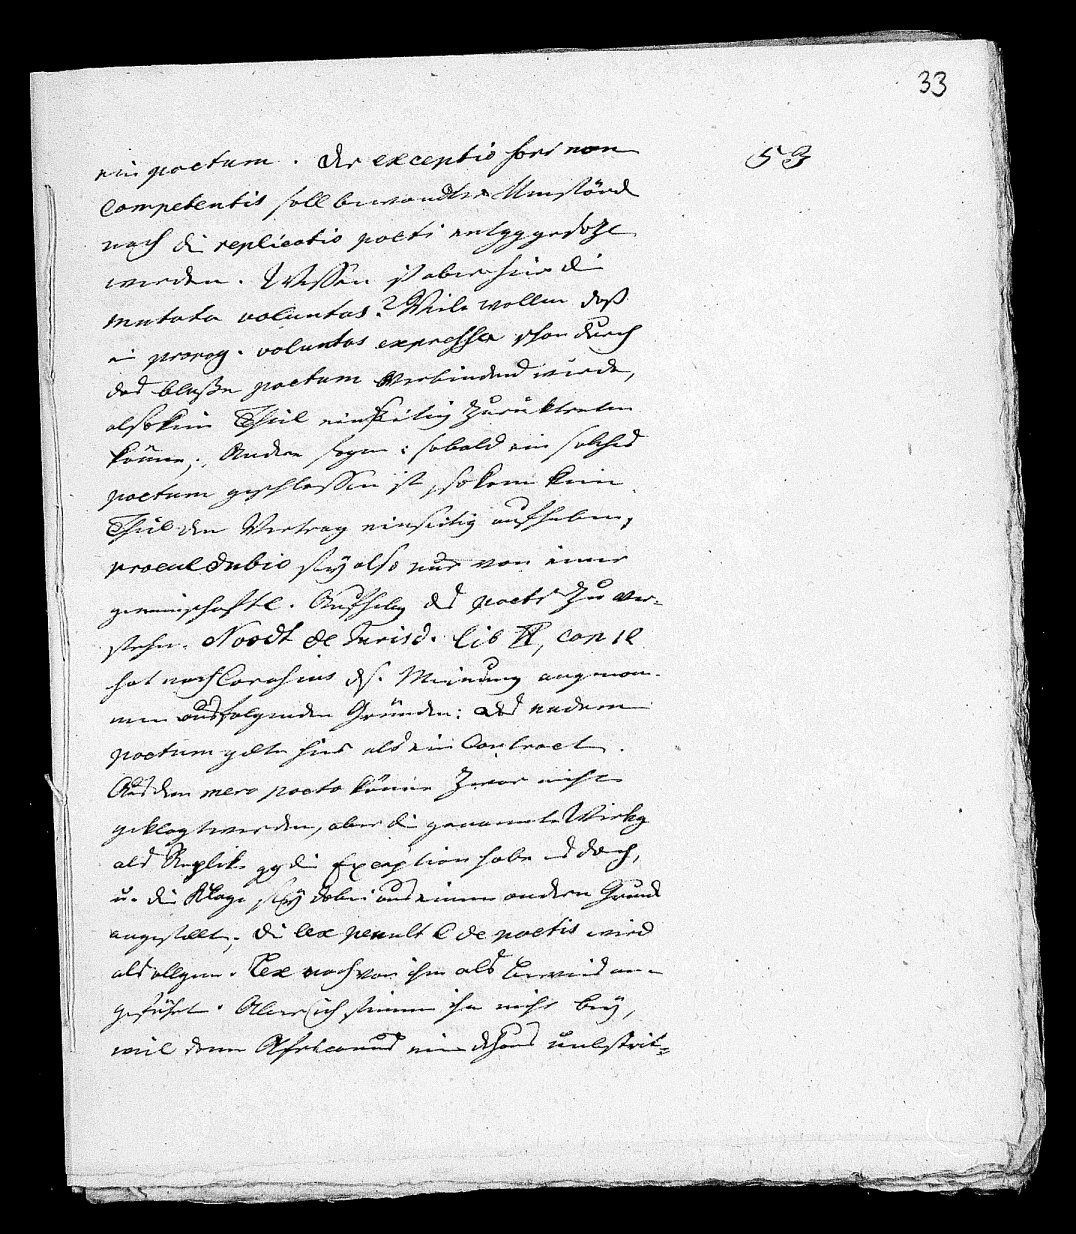 33
53
ein pactum. Der exceptio fori non
competentis soll bewandten Umständ
nach die replicatio pacti entgggesetzt
werden. Wessen ist aber hier die
mutata voluntas? Viele wollen daß
ein prorog. voluntas expressa schon durch
das bloße pactum verbindend würde,
also kein Theil einseitig zurüktreten
könne; Andre sagen: sobald ein solches
pactum geschlossen ist, so kann kein
Theil den Vertrag einseitig aufheben,
procul dubio sey also nur von einer
gemeinschaftl. Aufhebg des pacts zu ver-
stehen. Noodt de Jurisd. lib II, cap 12
hat nach ds. Meinung angenom-
men aus folgenden Gründen: das nudum
pactum gelte hier als ein Contract.
Aus dem mero pacto könne zwar nicht
geklagt werden, aber die genannte Wirkg
als Replik gg die Exception habe es doch,
u. die Klage sey dabei aus einem andern Grund
angestellt; die lex penult C de pactis wird
als allgem. Lex noch von ihm als Beweis an-
geführt. Aber ich stimme ihm nicht bey,
weil denn eine unbestrit-